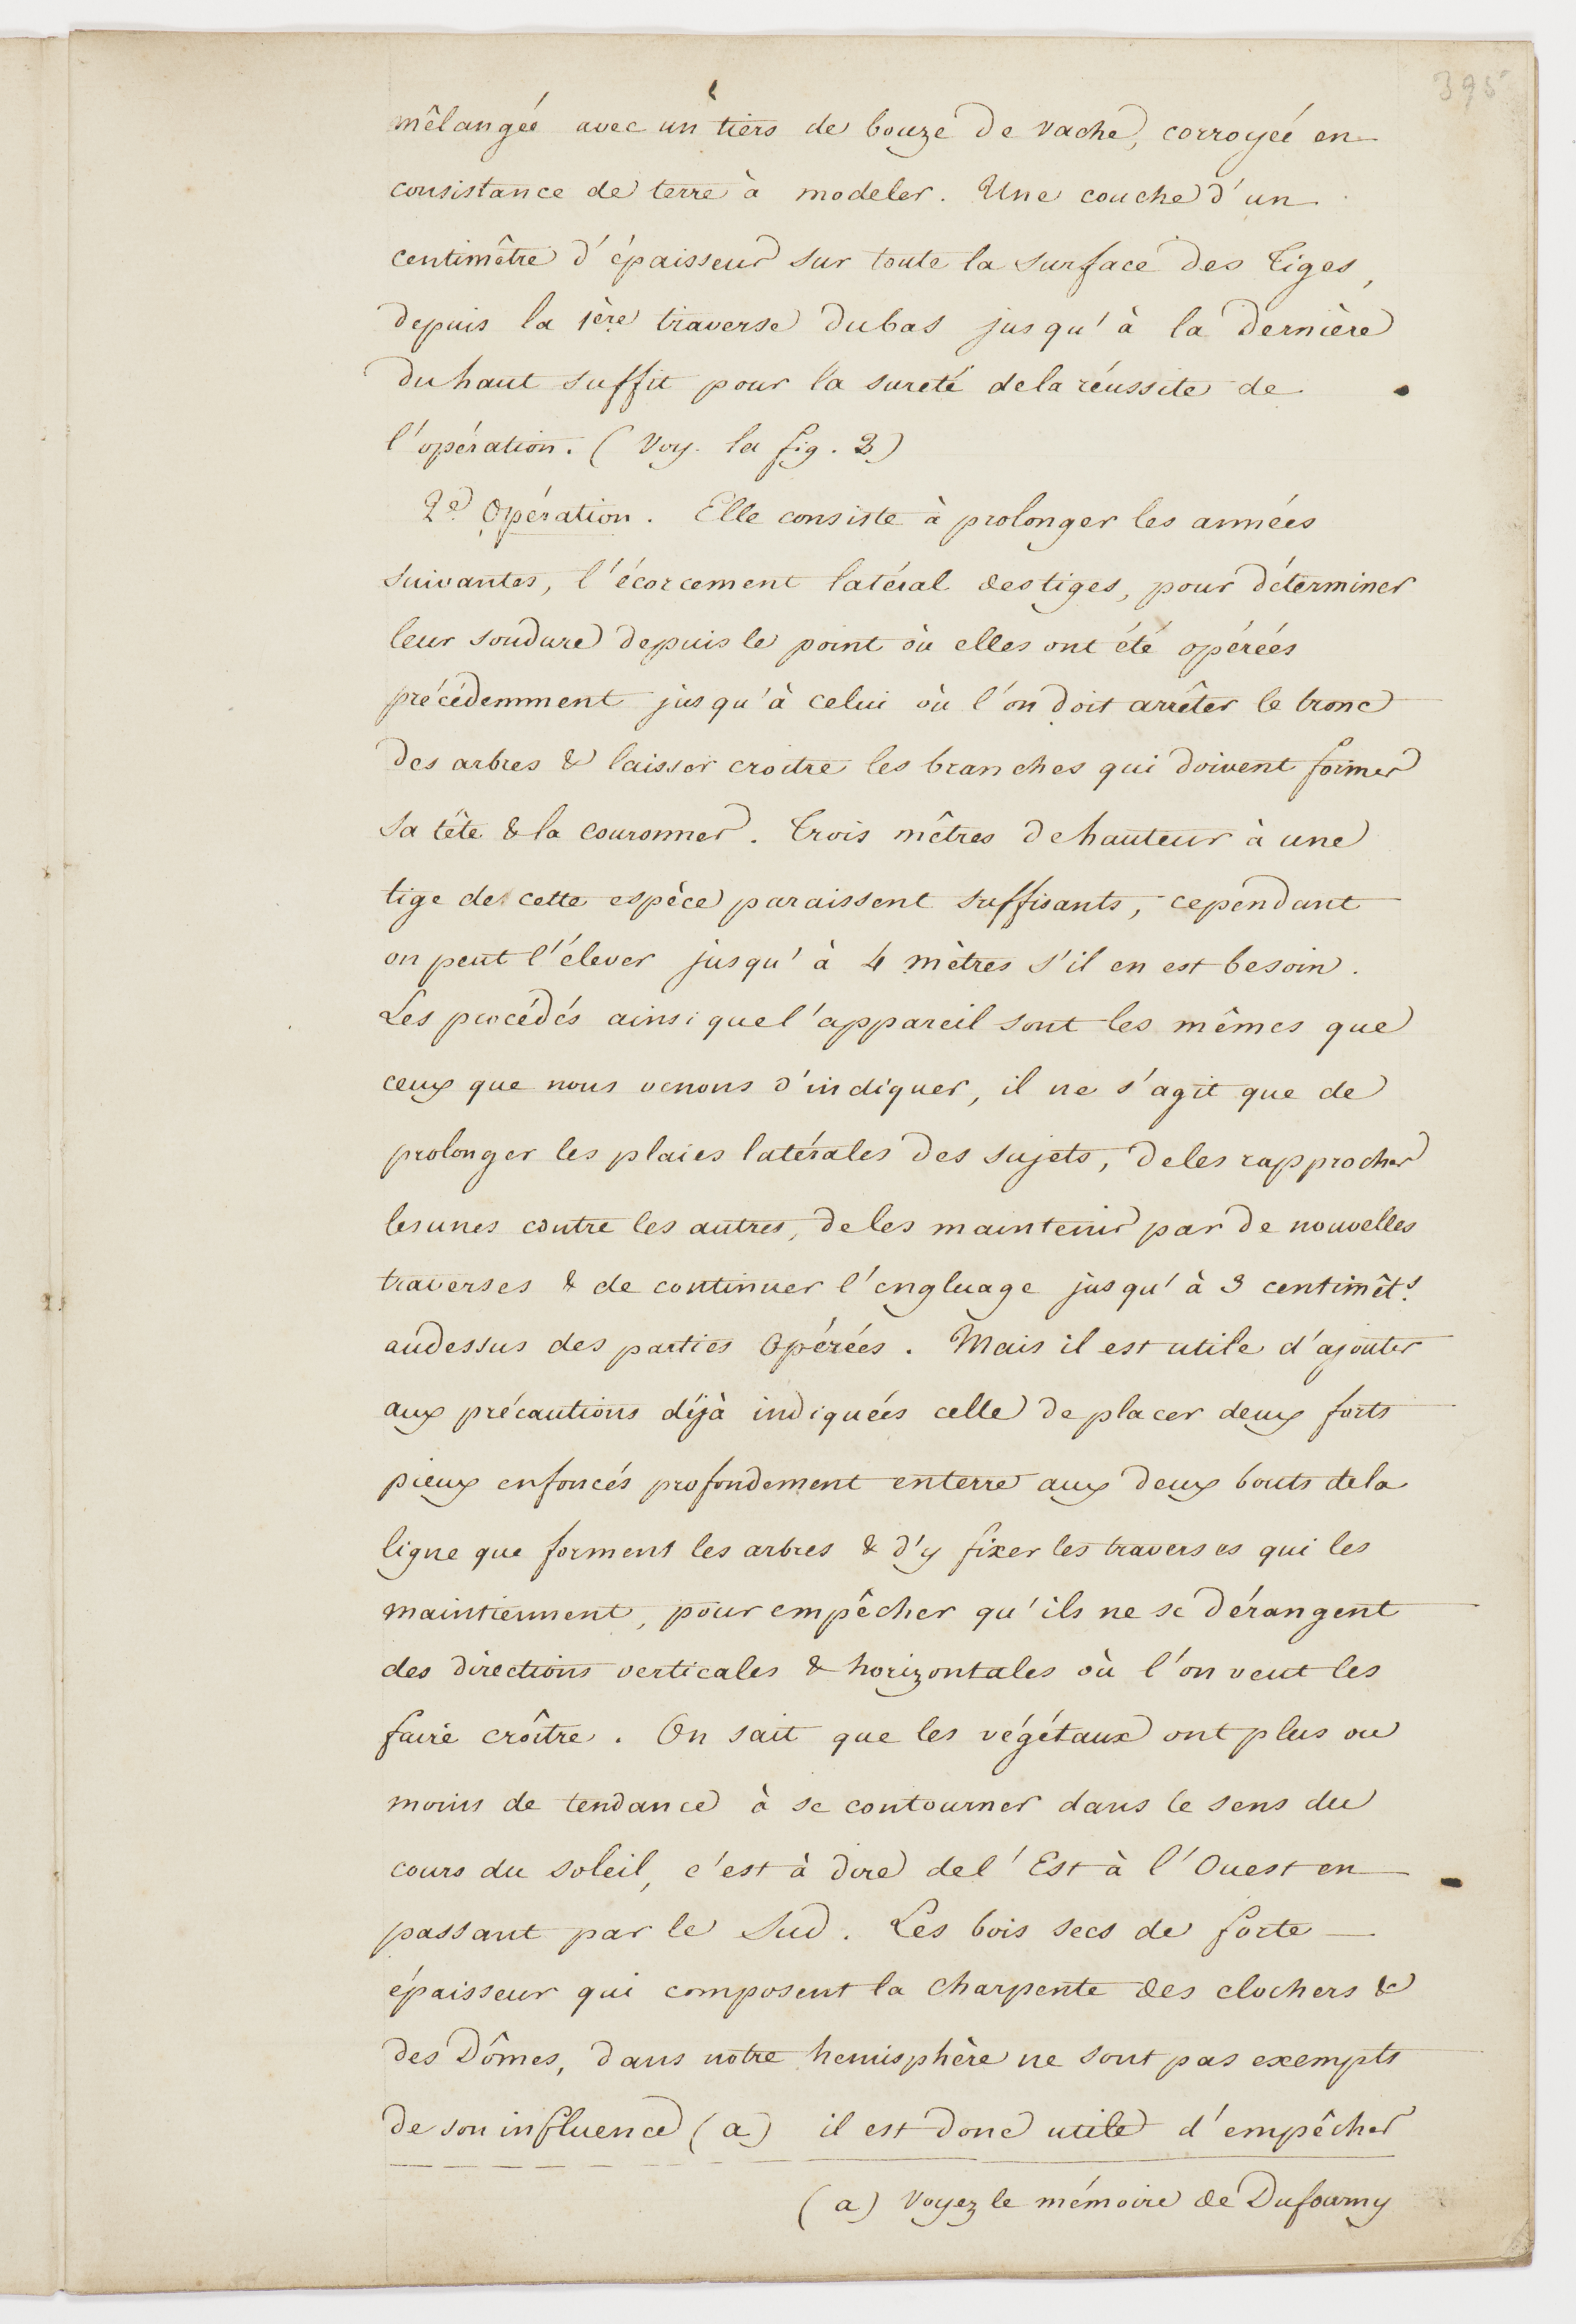 395
mêlangée avec un tiers de bouze de vache, corroyée en
consistance de terre à modeler. Une couche d'un
centimêtre d'épaisseur sur toute la surface des tiges,
depuis la 1ère traverse du bas jusqu'à la dernière
du haut suffit pour la sureté de la réussite de
l'opération. (Voy. la fig. 2)
2e Opération. Elle consiste à prolonger les années
suivantes, l'écorcement latéral des tiges, pour déterminer
leur soudure depuis le point où elles ont été opérées
précédemment jusqu'à celui où l'on doit arrêter le tronc
des arbres & laisser croitre les branches qui doivent former
sa tête & la couronner. Trois mêtres de hauteur à une
tige de cette espèce paraissent suffisants, cependant
on peut l'élever jusqu'à 4 mètres s'il en est besoin.
Les procédés ainsi que l'appareil sont les mêmes que
ceux que nous venons d'indiquer, il ne s'agit que de
prolonger les plaies latérales des sujets, de les rapprocher
les unes contre les autres, de les maintenir par de nouvelles
traverses & de continuer l'engluage jusqu'à 3 centimêts.
audessus des parties opérées. Mais il est utile d'ajouter
aux précautions déjà indiquées celle de placer deux forts
pieux enfoncés profondement en terre aux deux bouts de la
ligne que forment les arbres & d'y fixer les traverses qui les
maintiennent, pour empêcher qu'ils ne se dérangent
des directions verticales & horizontales où l'on veut les
faire croître. On sait que les végétaux ont plus ou
moins de tendance à se contourner dans le sens du
cours du soleil, c'est à dire de l'Est à l'Ouest en
passant par le Sud. Les bois secs de forte
épaisseur qui composent la charpente des clochers &
des Dômes, dans notre hemisphère ne sont pas exempts
de son influence (a) il est donc utile d'empêcher
(a) Voyez le mémoire de Dufourny